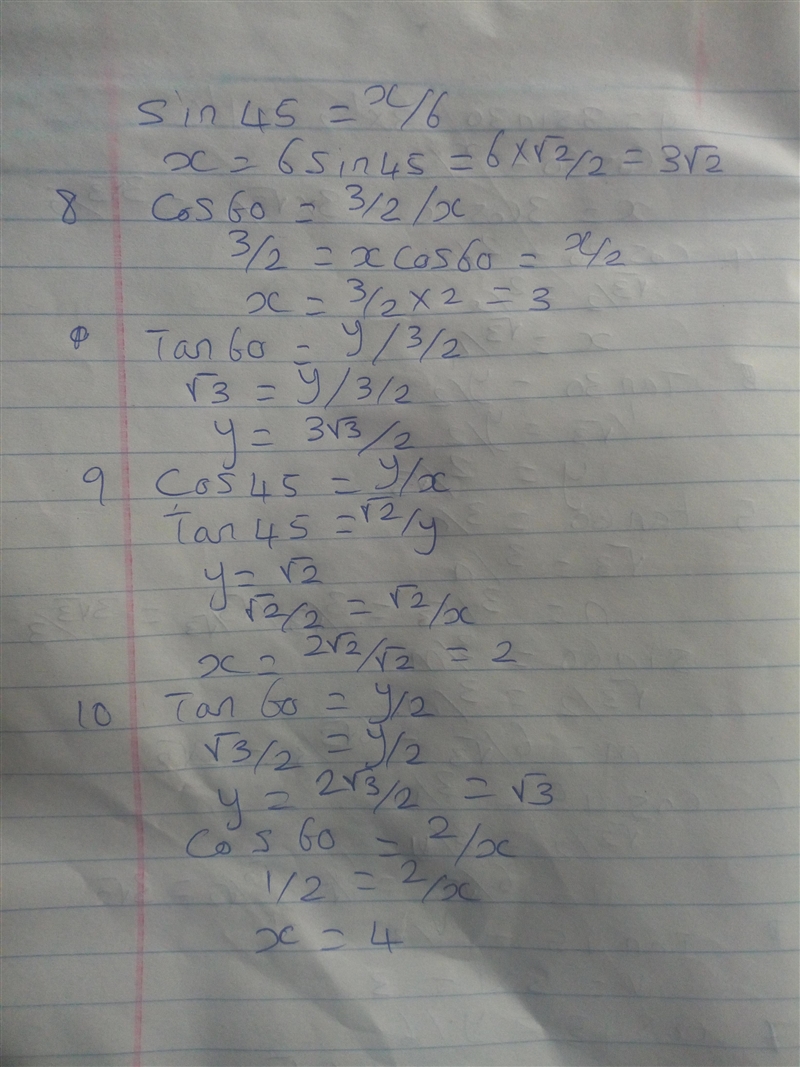 sin 45 = x/6
x = 6 sin 45 = 6×√2/2 = 3√2
8 Cos 60 = 3/2/x
3/2 = x cos 60 = x/2
x = 3/2 × 2 = 3
Tan 60 = y/3/2
√3 = y/3/2
y = 3√3/2
9 Cos 45 = y/x
Tan 45 = √2/y
y = √2
√2/2 = √2/x
x = 2√2/√2 = 2
10 Tan 60 = y/2
√3/2 = y/2
y = 2√3/2 = √3
Cos 60 = 2/x
1/2 = 2/x
x = 4